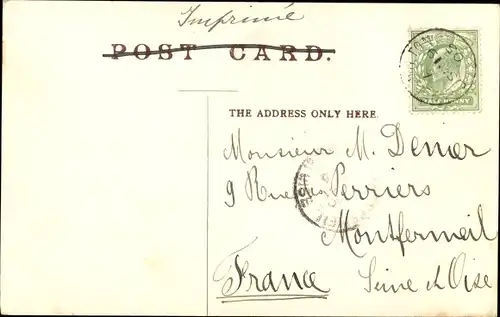 Imprimé
POST CARD.
THE ADDRESS ONLY HERE.
Monsieur M. Demor
9 Rue des Perriers
Montfermeil
France Seine et Oise
HALFPENNY